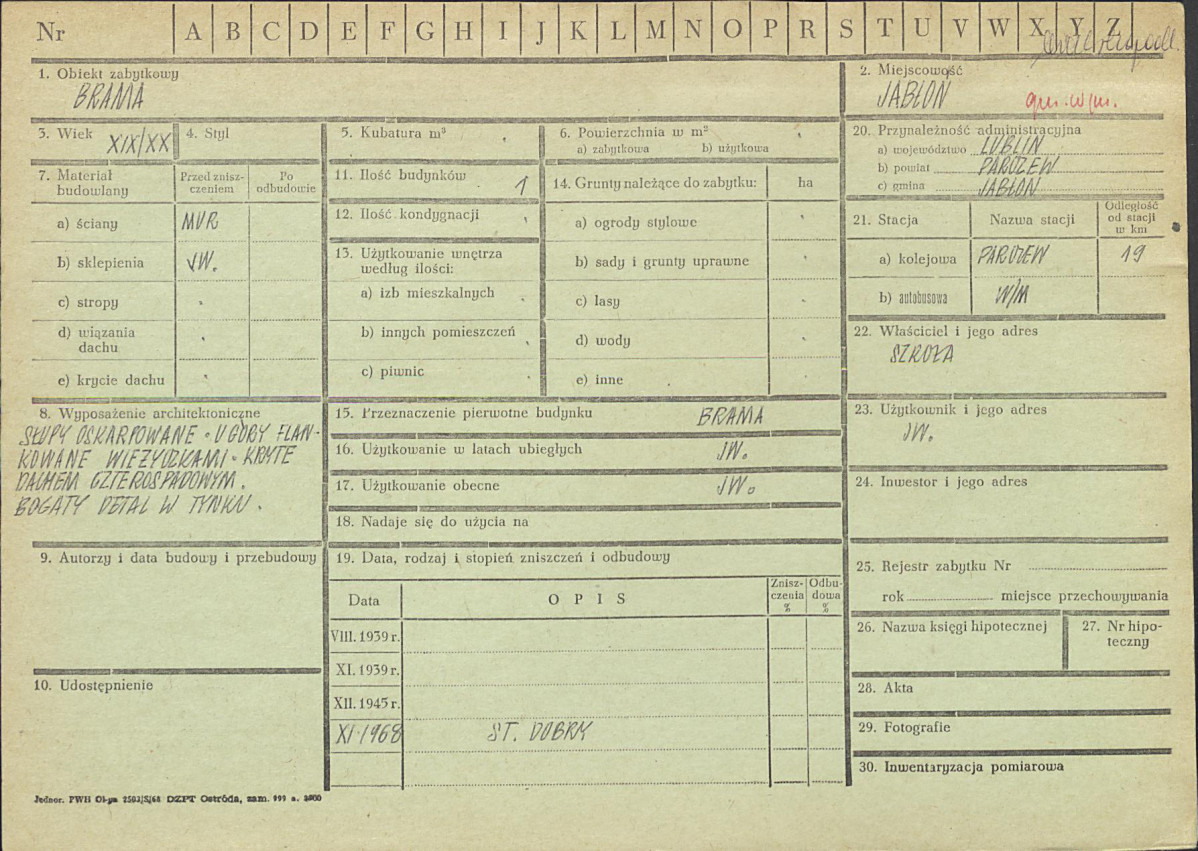 Nr A B C D E F G H I J K L M N O P R S T U V W X Y Z
1. Obiekt zabytkowy
BRAMA
2. Miejscowość
JABŁOŃ
gm. w/m.
3. Wiek XIX/XX
4. Styl
5. Kubatura m³
6. Powierzchnia w m²
a) zabytkowa b) użytkowa
20. Przynależność administracyjna
a) województwo LUBLIN
b) powiat PARCZEW
c) gmina JABŁOŃ
7. Materiał budowlany
Przed zniszczeniem
Po odbudowie
a) ściany MUR.
b) sklepienia JW.
c) stropy
d) wiązania dachu
e) krycie dachu
11. Ilość budynków 1
12. Ilość kondygnacji
13. Użytkowanie wnętrza
według ilości:
a) izb mieszkalnych
b) innych pomieszczeń
c) piwnic
14. Grunty należące do zabytku: ha
a) ogrody stylowe
b) sady i grunty uprawne
c) lasy
d) wody
e) inne
21. Stacja Nazwa stacji
Odległość
od stacji
w km
a) kolejowa PARCZEW 19
b) autobusowa W/M
22. Właściciel i jego adres
SZKOŁA
8. Wyposażenie architektoniczne
SŁUPY OSKARPOWANE. U GÓRY FLAN-
KOWANE WIEŻYCZKAMI. KRYTE
DACHEM CZTEROSPADOWYM.
BOGATY DETAL W TYNKU.
15. Przeznaczenie pierwotne budynku BRAMA
16. Użytkowanie w latach ubiegłych JW.
17. Użytkowanie obecne JW.
18. Nadaje się do użycia na
23. Użytkownik i jego adres
JW.
24. Inwestor i jego adres
9. Autorzy i data budowy i przebudowy
10. Udostępnienie
19. Data, rodzaj i stopień zniszczeń i odbudowy
Data OPIS
Znisz-
czenia
%
Odbu-
dowa
%
VIII. 1939 r.
XI. 1939 r.
XII. 1945 r.
XI.1968 ST. DOBRY
25. Rejestr zabytku Nr
rok miejsce przechowywania
26. Nazwa księgi hipotecznej
27. Nr hipo-
teczny
28. Akta
29. Fotografie
30. Inwentaryzacja pomiarowa
Jednor. PWH DZPT Ostróda, zam.